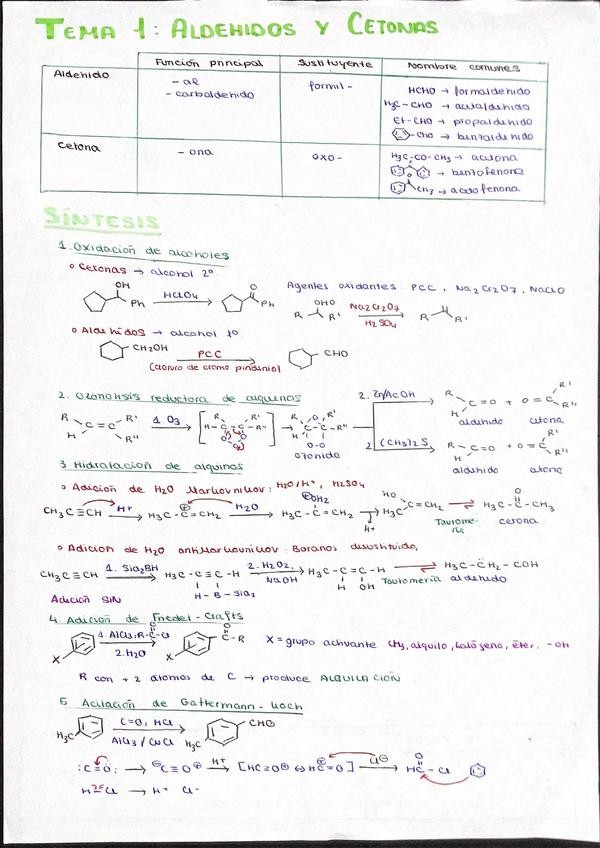 TEMA 1: ALDEHIDOS Y CETONAS
Función principal Sustituyente Nombre comunes
Aldehido - al formil- HCHO → formaldehido
- carbaldehido H₃C-CHO → acetaldehido
Et-CHO → propaldehido
-CHO → benzaldehido
Cetona - ona oxo- H₃C-CO-CH₃ → acetona
→ benzofenona
CH₃ → acetofenona
SÍNTESIS
1. Oxidación de alcoholes
° Cetonas → alcohol 2º
OH O
Ph HClO₄ Ph Agentes oxidantes: PCC, Na₂Cr₂O7, NaClO
OHO
R R' Na₂Cr₂O7 R R'
H₂SO₄
° Aldehidos → alcohol 1º
CH₂OH PCC CHO
(cloruro de cromo piridinio)
2. Ozonolisis reductora de alquenos
R R' 1. O₃ 2. Zn/AcOH R R'
C=C C=O + O=C
H R'' H R''
ozonido aldehido cetona
2. (CH₃)₂S R R'
C=O + O=C
H R''
aldehido cetona
3. Hidratación de alquinos
° Adición de H₂O Markovnikov: H₂O/H⁺, H₂SO₄
CH₃C≡CH H⁺ H₃C-C=CH₂ H₂O H₃C-C=CH₂ H⁺ HO C=CH₂ H₃C ⇌ CH₃-C-CH₃
⊕OH₂ O
Tautomería cetona
° Adición de H₂O antiMarkovnikov: Boranos disustituido,
CH₃C≡CH 1. Sia₂BH H₃C-C=C-H 2. H₂O₂, NaOH H₃C-C=C-H ⇌ H₃C-CH₂-COH
H-B-Sia₂ H OH Tautomería aldehido
Adición SIN
4. Adición de Friedel-Crafts
X 1. AlCl₃; R-C-Cl 2. H₂O X C-R X = grupo activante CH₃, alquilo, halógeno, éter, -OH
R con + 2 átomos de C → produce ALQUILACIÓN
5. Acilación de Gattermann-Koch
H₃C C=O, HCl H₃C CHO
AlCl₃ / CuCl
:C≡O: → ⊖C≡O⊕ H⁺ [HC≡O⊕ ↔ HC⊕=O] Cl⊖ HC-Cl
O
H-Cl → H⁺ Cl⁻